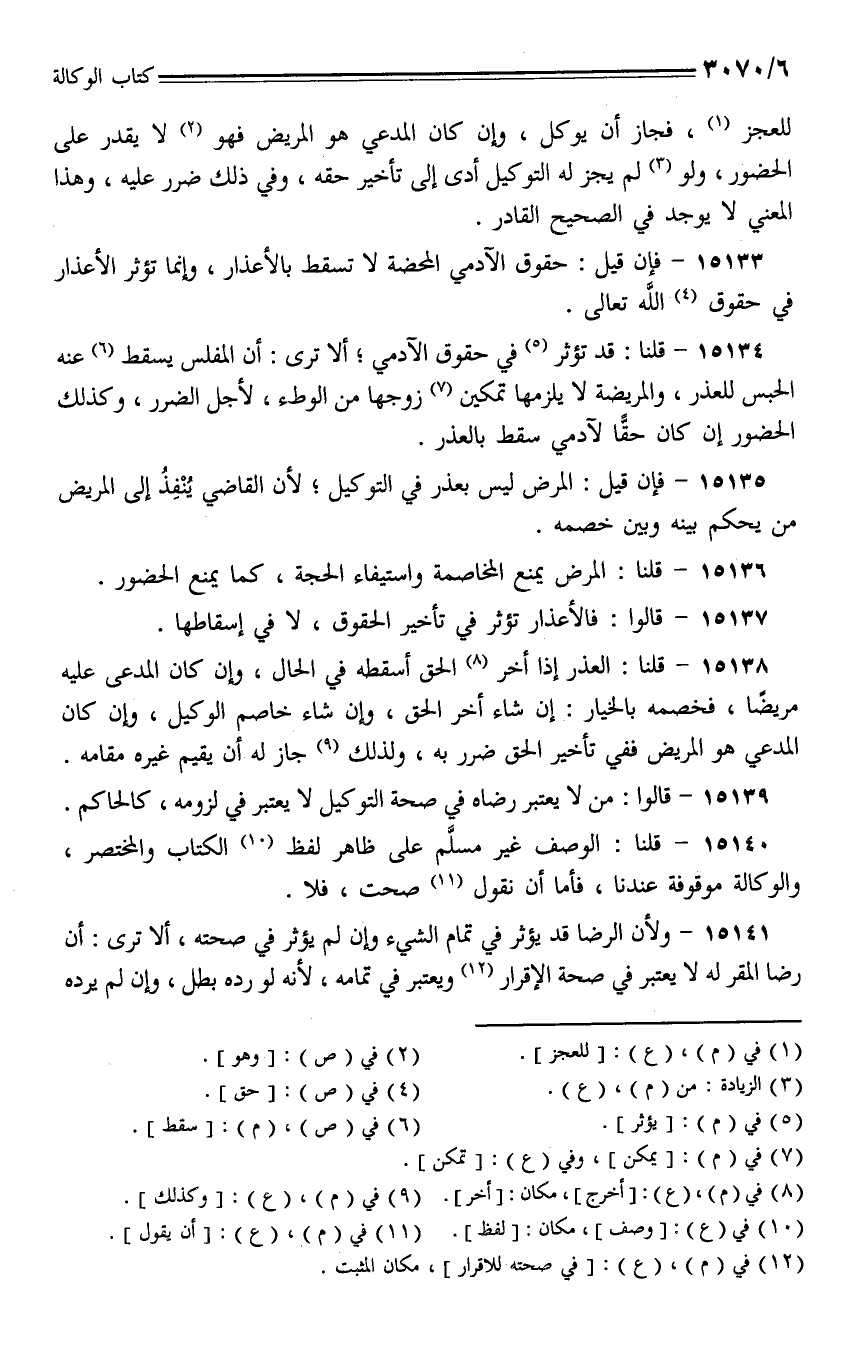 ٣٠٧٠/٦ كتاب الوكالة
للعجز (١) ، فجاز أن يوكل ، وإن كان المدعي هو المريض فهو (٢) لا يقدر على
الحضور ، ولو (٣) لم يجز له التوكيل أدى إلى تأخير حقه ، وفي ذلك ضرر عليه ، وهذا
المعني لا يوجد في الصحيح القادر .
١٥١٣٣ - فإن قيل : حقوق الآدمي المحضة لا تسقط بالأعذار ، وإنما تؤثر الأعذار
في حقوق (٤) اللَّه تعالى .
١٥١٣٤ - قلنا : قد تؤثر (٥) في حقوق الآدمي ؛ ألا ترى : أن المفلس يسقط (٦) عنه
الحبس للعذر ، والمريضة لا يلزمها تمكين (٧) زوجها من الوطء ، لأجل الضرر ، وكذلك
الحضور إن كان حقًّا لآدمي سقط بالعذر .
١٥١٣٥ - فإن قيل : المرض ليس بعذر في التوكيل ؛ لأن القاضي يُنْفِذُ إلى المريض
من يحكم بينه وبين خصمه .
١٥١٣٦ - قلنا : المرض يمنع المخاصمة واستيفاء الحجة ، كما يمنع الحضور .
١٥١٣٧ - قالوا : فالأعذار تؤثر في تأخير الحقوق ، لا في إسقاطها .
١٥١٣٨ - قلنا : العذر إذا أخر (٨) الحق أسقطه في الحال ، وإن كان المدعى عليه
مريضًا ، فخصمه بالخيار : إن شاء أخر الحق ، وإن شاء خاصم الوكيل ، وإن كان
المدعي هو المريض ففي تأخير الحق ضرر به ، ولذلك (٩) جاز له أن يقيم غيره مقامه .
١٥١٣٩ - قالوا : من لا يعتبر رضاه في صحة التوكيل لا يعتبر في لزومه ، كالحاكم .
١٥١٤٠ - قلنا : الوصف غير مسلَّم على ظاهر لفظ (١٠) الكتاب والمختصر ،
والوكالة موقوفة عندنا ، فأما أن نقول (١١) صحت ، فلا .
١٥١٤١ - ولأن الرضا قد يؤثر في تمام الشيء وإن لم يؤثر في صحته ، ألا ترى : أن
رضا المقر له لا يعتبر في صحة الإقرار (١٢) ويعتبر في تمامه ، لأنه لو رده بطل ، وإن لم يرده
(١) في ( م ) ، ( ع ) : [ للعجز ] . (٢) في ( ص ) : [ وهو ] .
(٣) الزيادة : من ( م ) ، ( ع ) . (٤) في ( ص ) : [ حق ] .
(٥) في ( م ) : [ يؤثر ] . (٦) في ( ص ) ، ( م ) : [ سقط ] .
(٧) في ( م ) : [ يمكن ] ، وفي ( ع ) : [ تمكن ] .
(٨) في ( م ) ، ( ع ) : [ أخرج ] ، مكان : [ أخر ] . (٩) في ( م ) ، ( ع ) : [ وكذلك ] .
(١٠) في ( ع ) : [ وصف ] ، مكان : [ لفظ ] . (١١) في ( م ) ، ( ع ) : [ أن يقول ] .
(١٢) في ( م ) ، ( ع ) : [ في صحته للاقرار ] ، مكان المثبت .